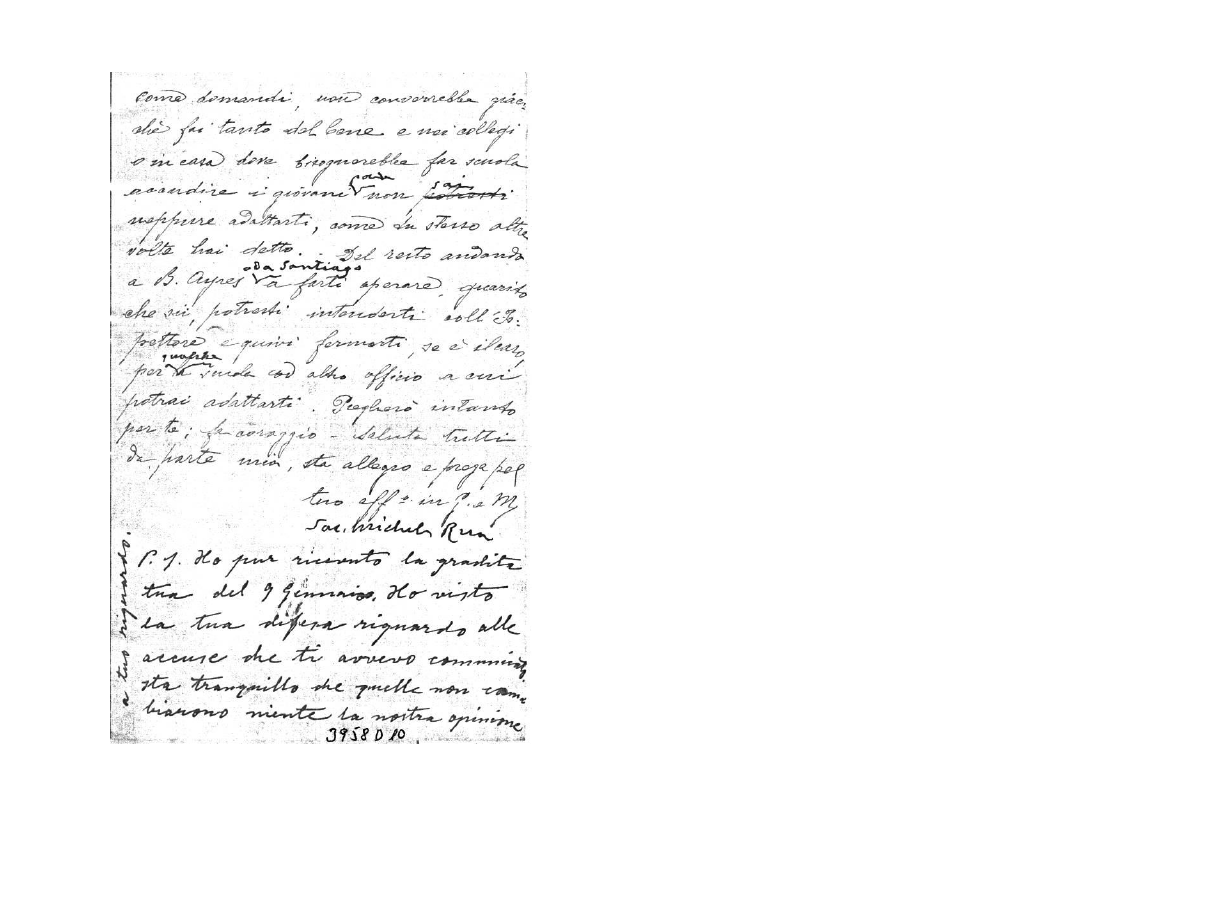 come domandi, non converrebbe giac-
chè fai tanto del bene e nei collegi
o in case dove bisognerebbe far scuola
accudire i giovani non potresti
sai
neppure adattarti, come tu stesso altre
volte hai detto. Del resto andando
o a Santiago
a B. Ayres a farti operare, guarito
che sii, potresti intenderti coll'Is-
pettore e quivi fermarti, se è il caso,
qualche
per scuola od altro officio a cui
potrai adattarti. Pregherò intanto
per te; fa coraggio - Saluta tutti
da parte mia, sta allegro e prega pel
tuo aff.º in G. e M.
Sac. Michele Rua
P. S. Ho pur ricevuto la gradita
tua del 9 Gennaio. Ho visto
la tua difesa riguardo alle
accuse che ti avevo comunicato,
sta tranquillo che quelle non cam-
biarono niente la nostra opinione
a tuo riguardo.
3958 D 10